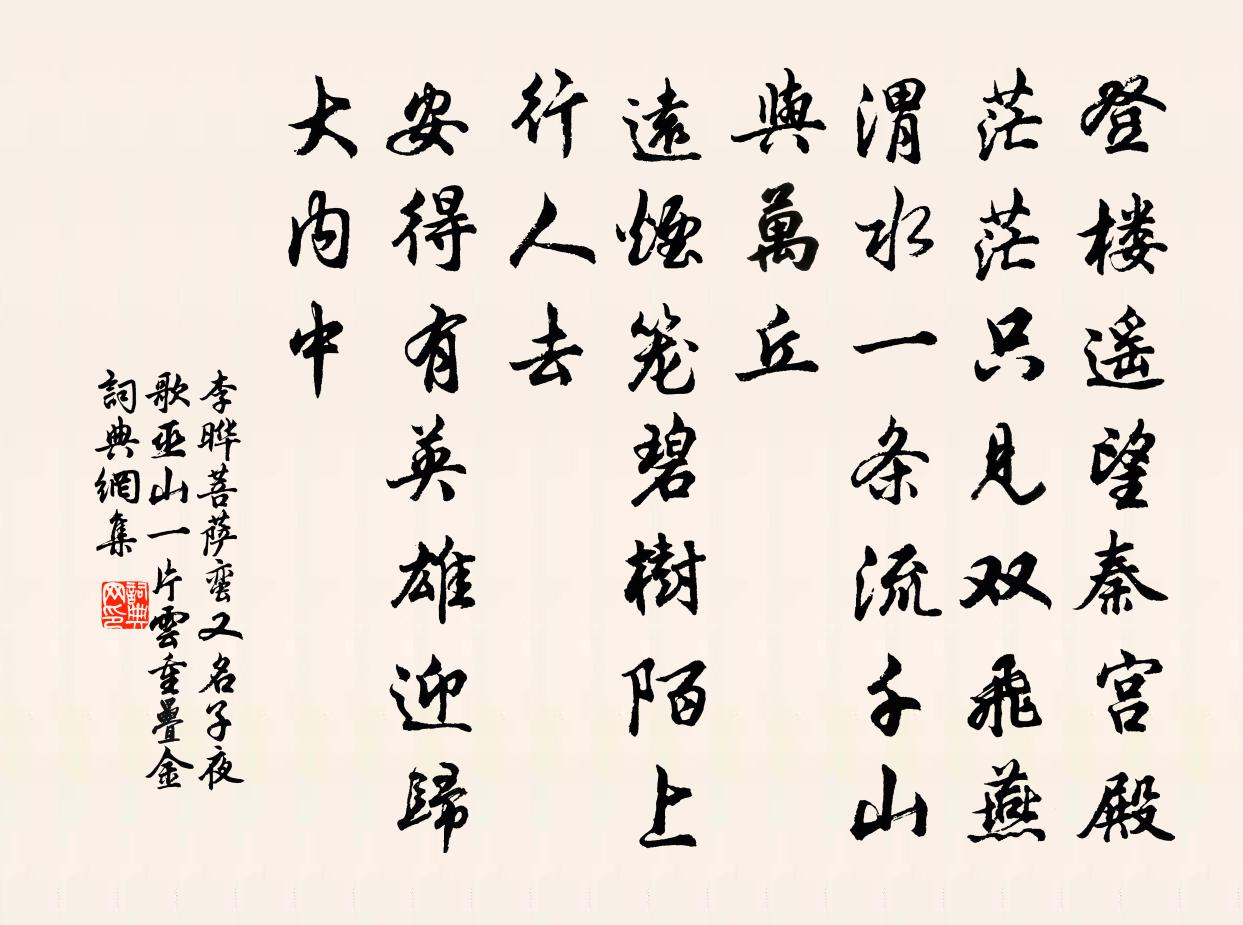 登楼遥望秦宫殿
茫茫只见双飛燕
渭水一条流千山
與萬丘
遠煙笼碧樹陌上
行人去
安得有英雄迎歸
大内中
李晔菩萨蛮又名子夜
歌巫山一片雲重疊金
詞典網集
詞典
网印